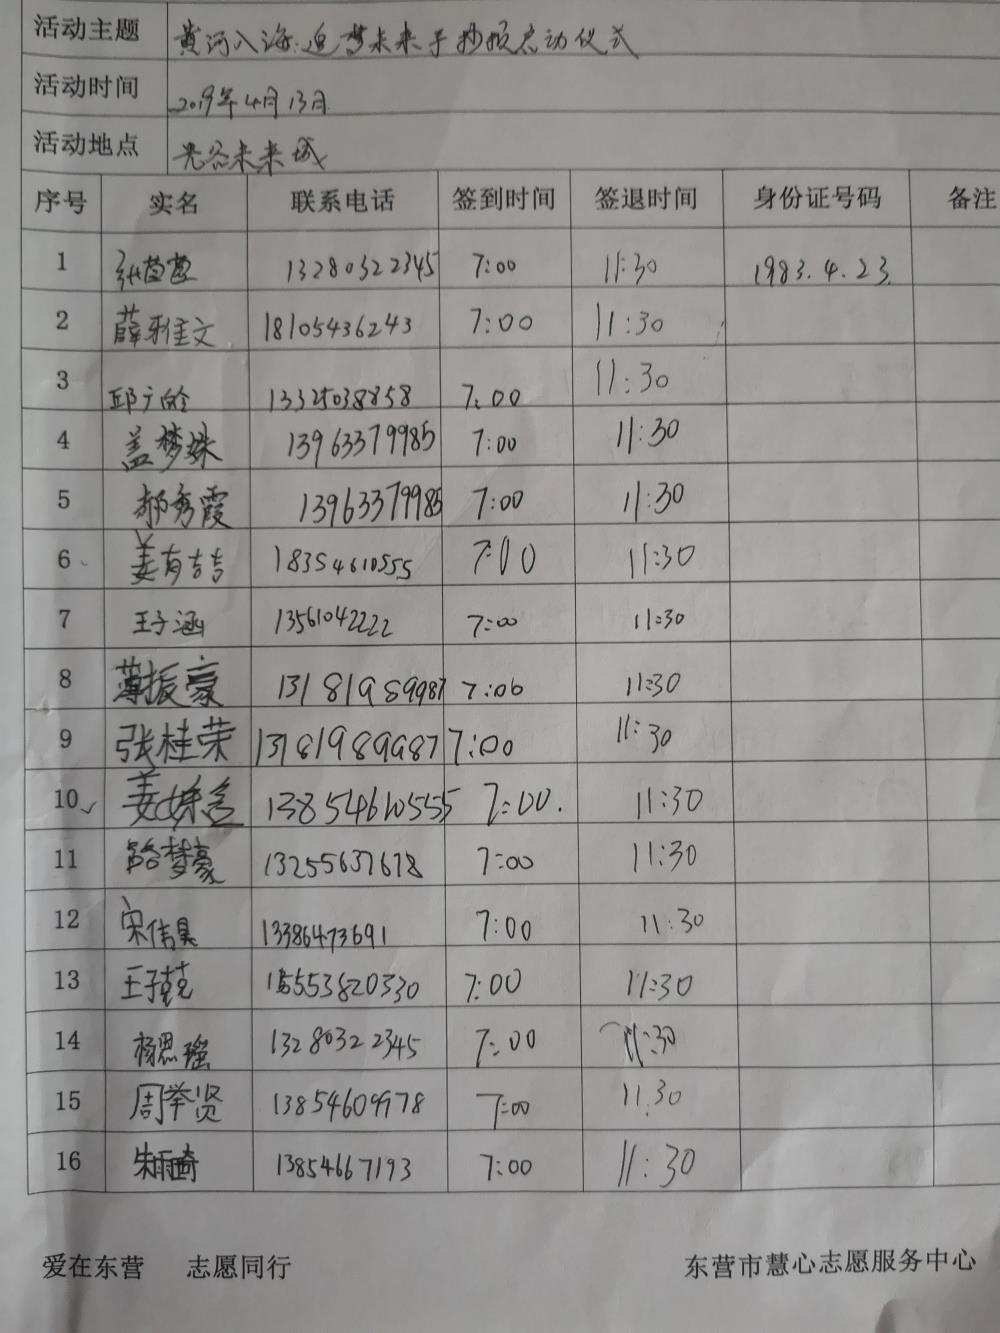 活动主题 黄河入海:追梦未来手抄报启动仪式
活动时间 2019年4月13日
活动地点 光谷未来城
序号 实名 联系电话 签到时间 签退时间 身份证号码 备注
1 张茵茵 13280322345 7:00 11:30 1983.4.23.
2 薛雅文 18105436243 7:00 11:30
3 邱广 13325038858 7:00 11:30
4 盖梦姝 13963379985 7:00 11:30
5 郝秀霞 13963379985 7:00 11:30
6 姜有吉 18354610555 7:00 11:30
7 王子涵 13561042222 7:00 11:30
8 薄振豪 13181989987 7:00 11:30
9 张桂荣 13181989987 7:00 11:30
10 姜 13854610555 7:00. 11:30
11 路梦豪 13255637678 7:00 11:30
12 宋倩昊 13386473691 7:00 11:30
13 王子乾 15553820330 7:00 11:30
14 杨思瑶 13280322345 7:00 11:30
15 周举贤 13854609978 7:00 11.30
16 朱雨琦 13854667193 7:00 11:30
爱在东营 志愿同行 东营市慧心志愿服务中心